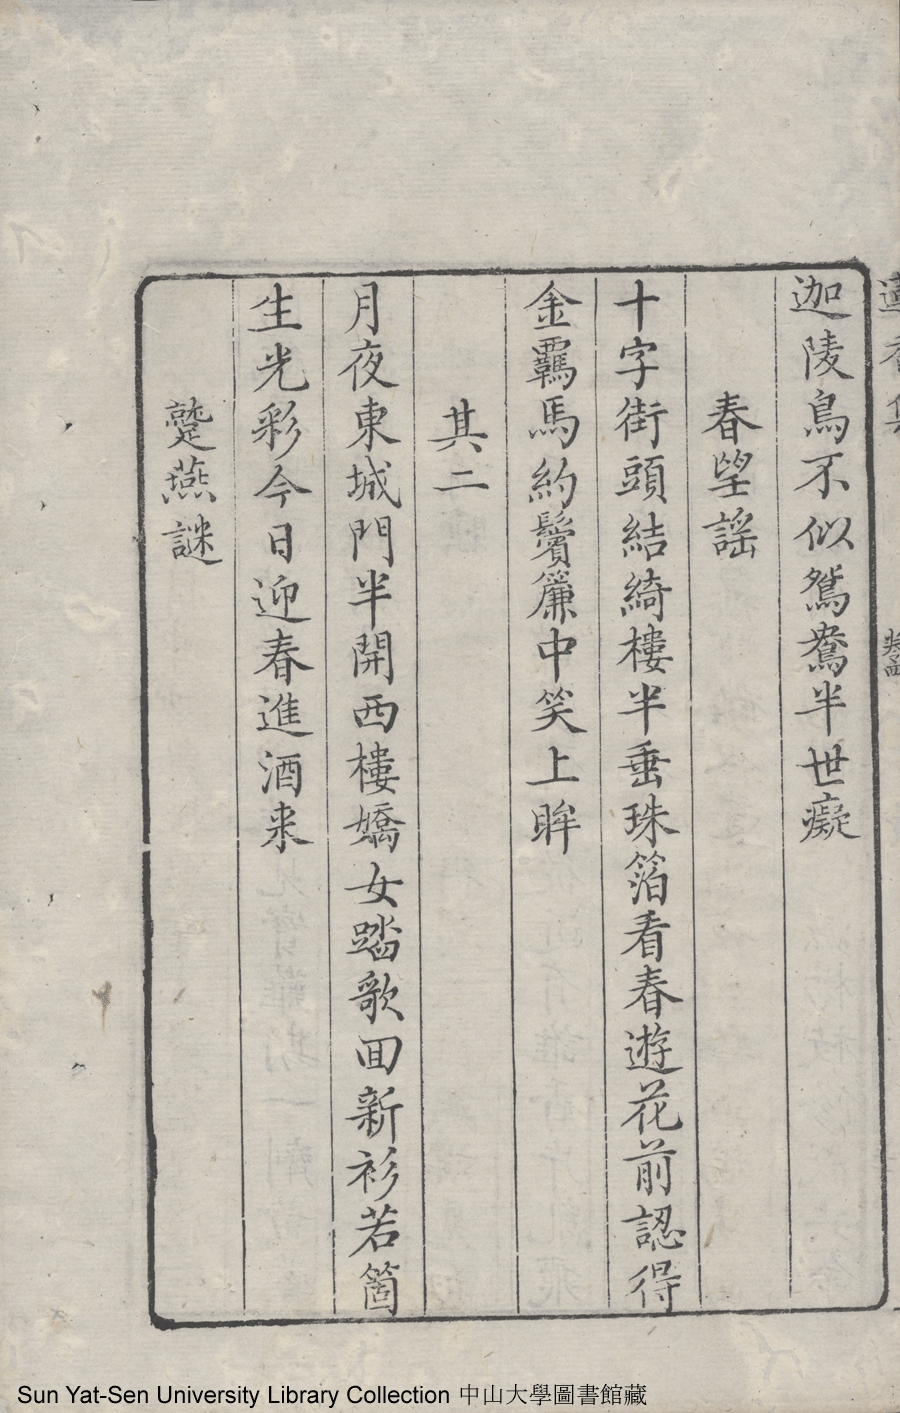 迦陵鳥不似鴛鴦半世癡
春望謡
十字街頭結綺樓半垂珠箔看春遊花前認得
金覊馬約鬢簾中笑上眸
其二
月夜東城門半開西樓嬌女踏歌囬新衫若箇
生光彩今日迎春進酒来
蹔燕謎
Sun Yat-Sen University Library Collection 中山大學圖書館藏